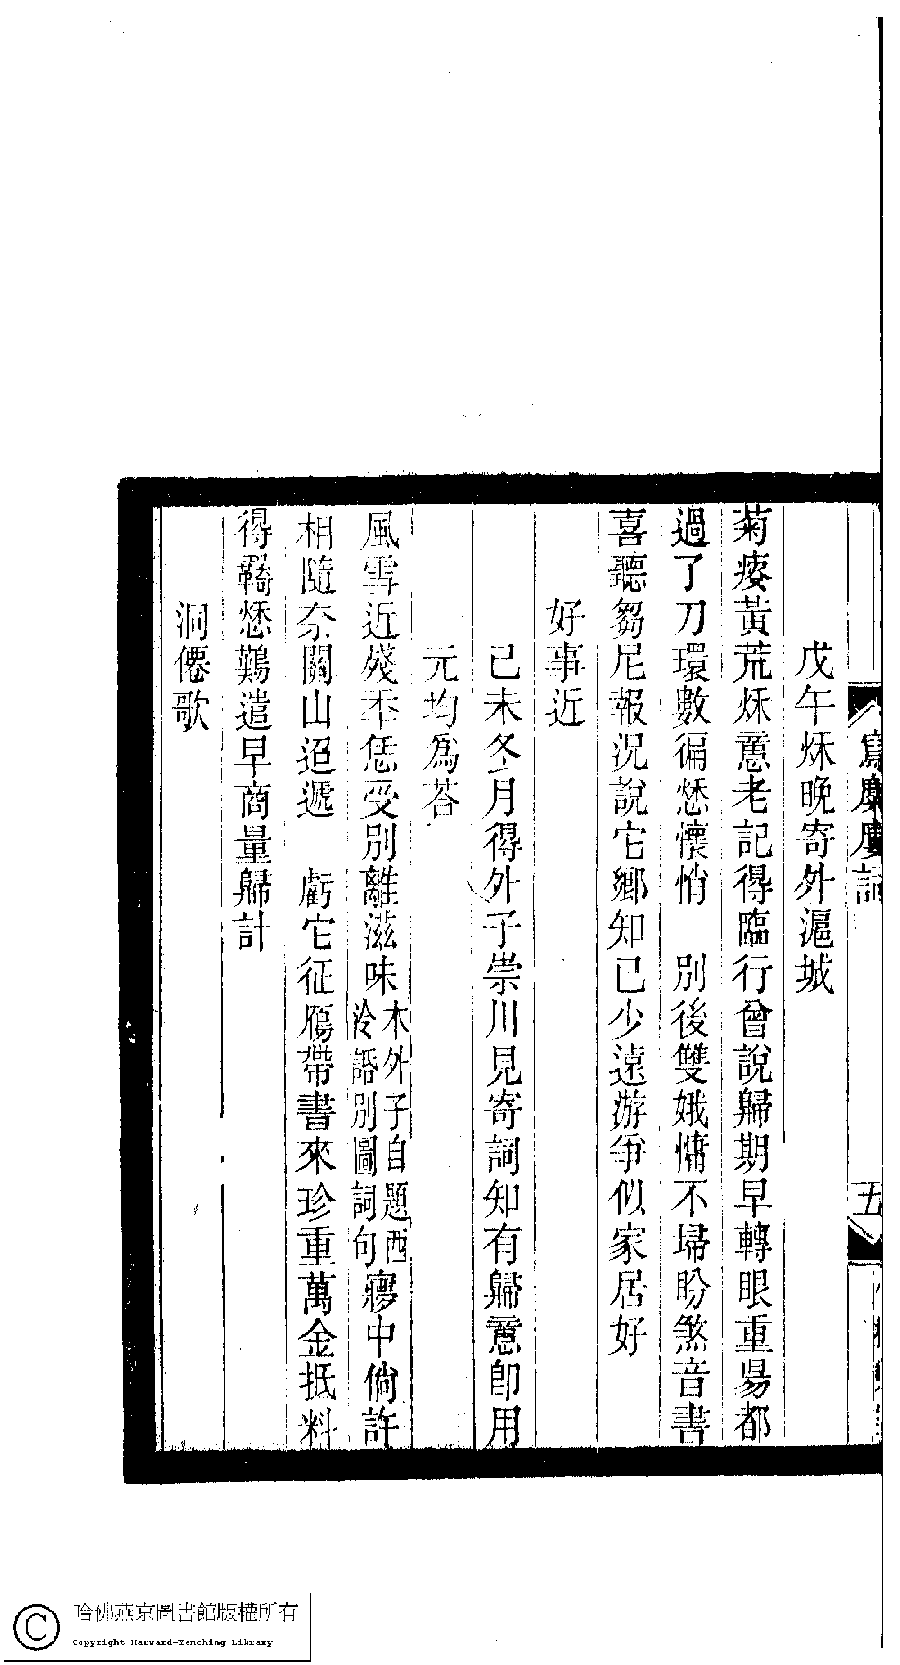 戊午秌晚寄外滬城
菊瘘黃荒秌意老記得臨行曾說歸期早轉眼重昜都
過了刀環數徧愁懷悄　別後雙娥慵不埽盼煞音書
喜聽芻尼報況說它鄉知已少遠游爭似家居好
好事近
已未冬月得外子崇川見寄詞知有歸意卽用
元均爲荅
風雪近殘年恁受別離滋味
本外子自題西
泠語別圖詞句
寢中倘許
相隨奈關山迢遞　虧它征鴈帶書來珍重萬金抵料
得羇愁難遣早商量歸計
洞僊歌
五
哈佛燕京圖書館版權所有
Copyright Harvard-Yenching Library